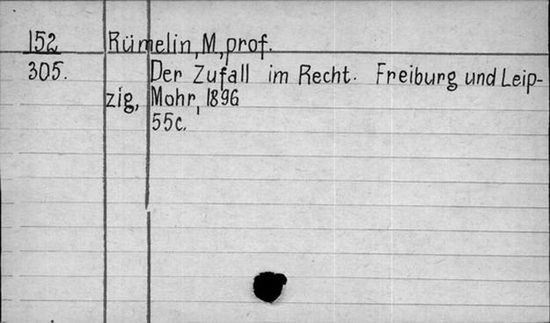 152 Rümelin, M, prof.
305. Der Zufall im Recht. Freiburg und Leip-
zig, Mohr, 1896
55c.